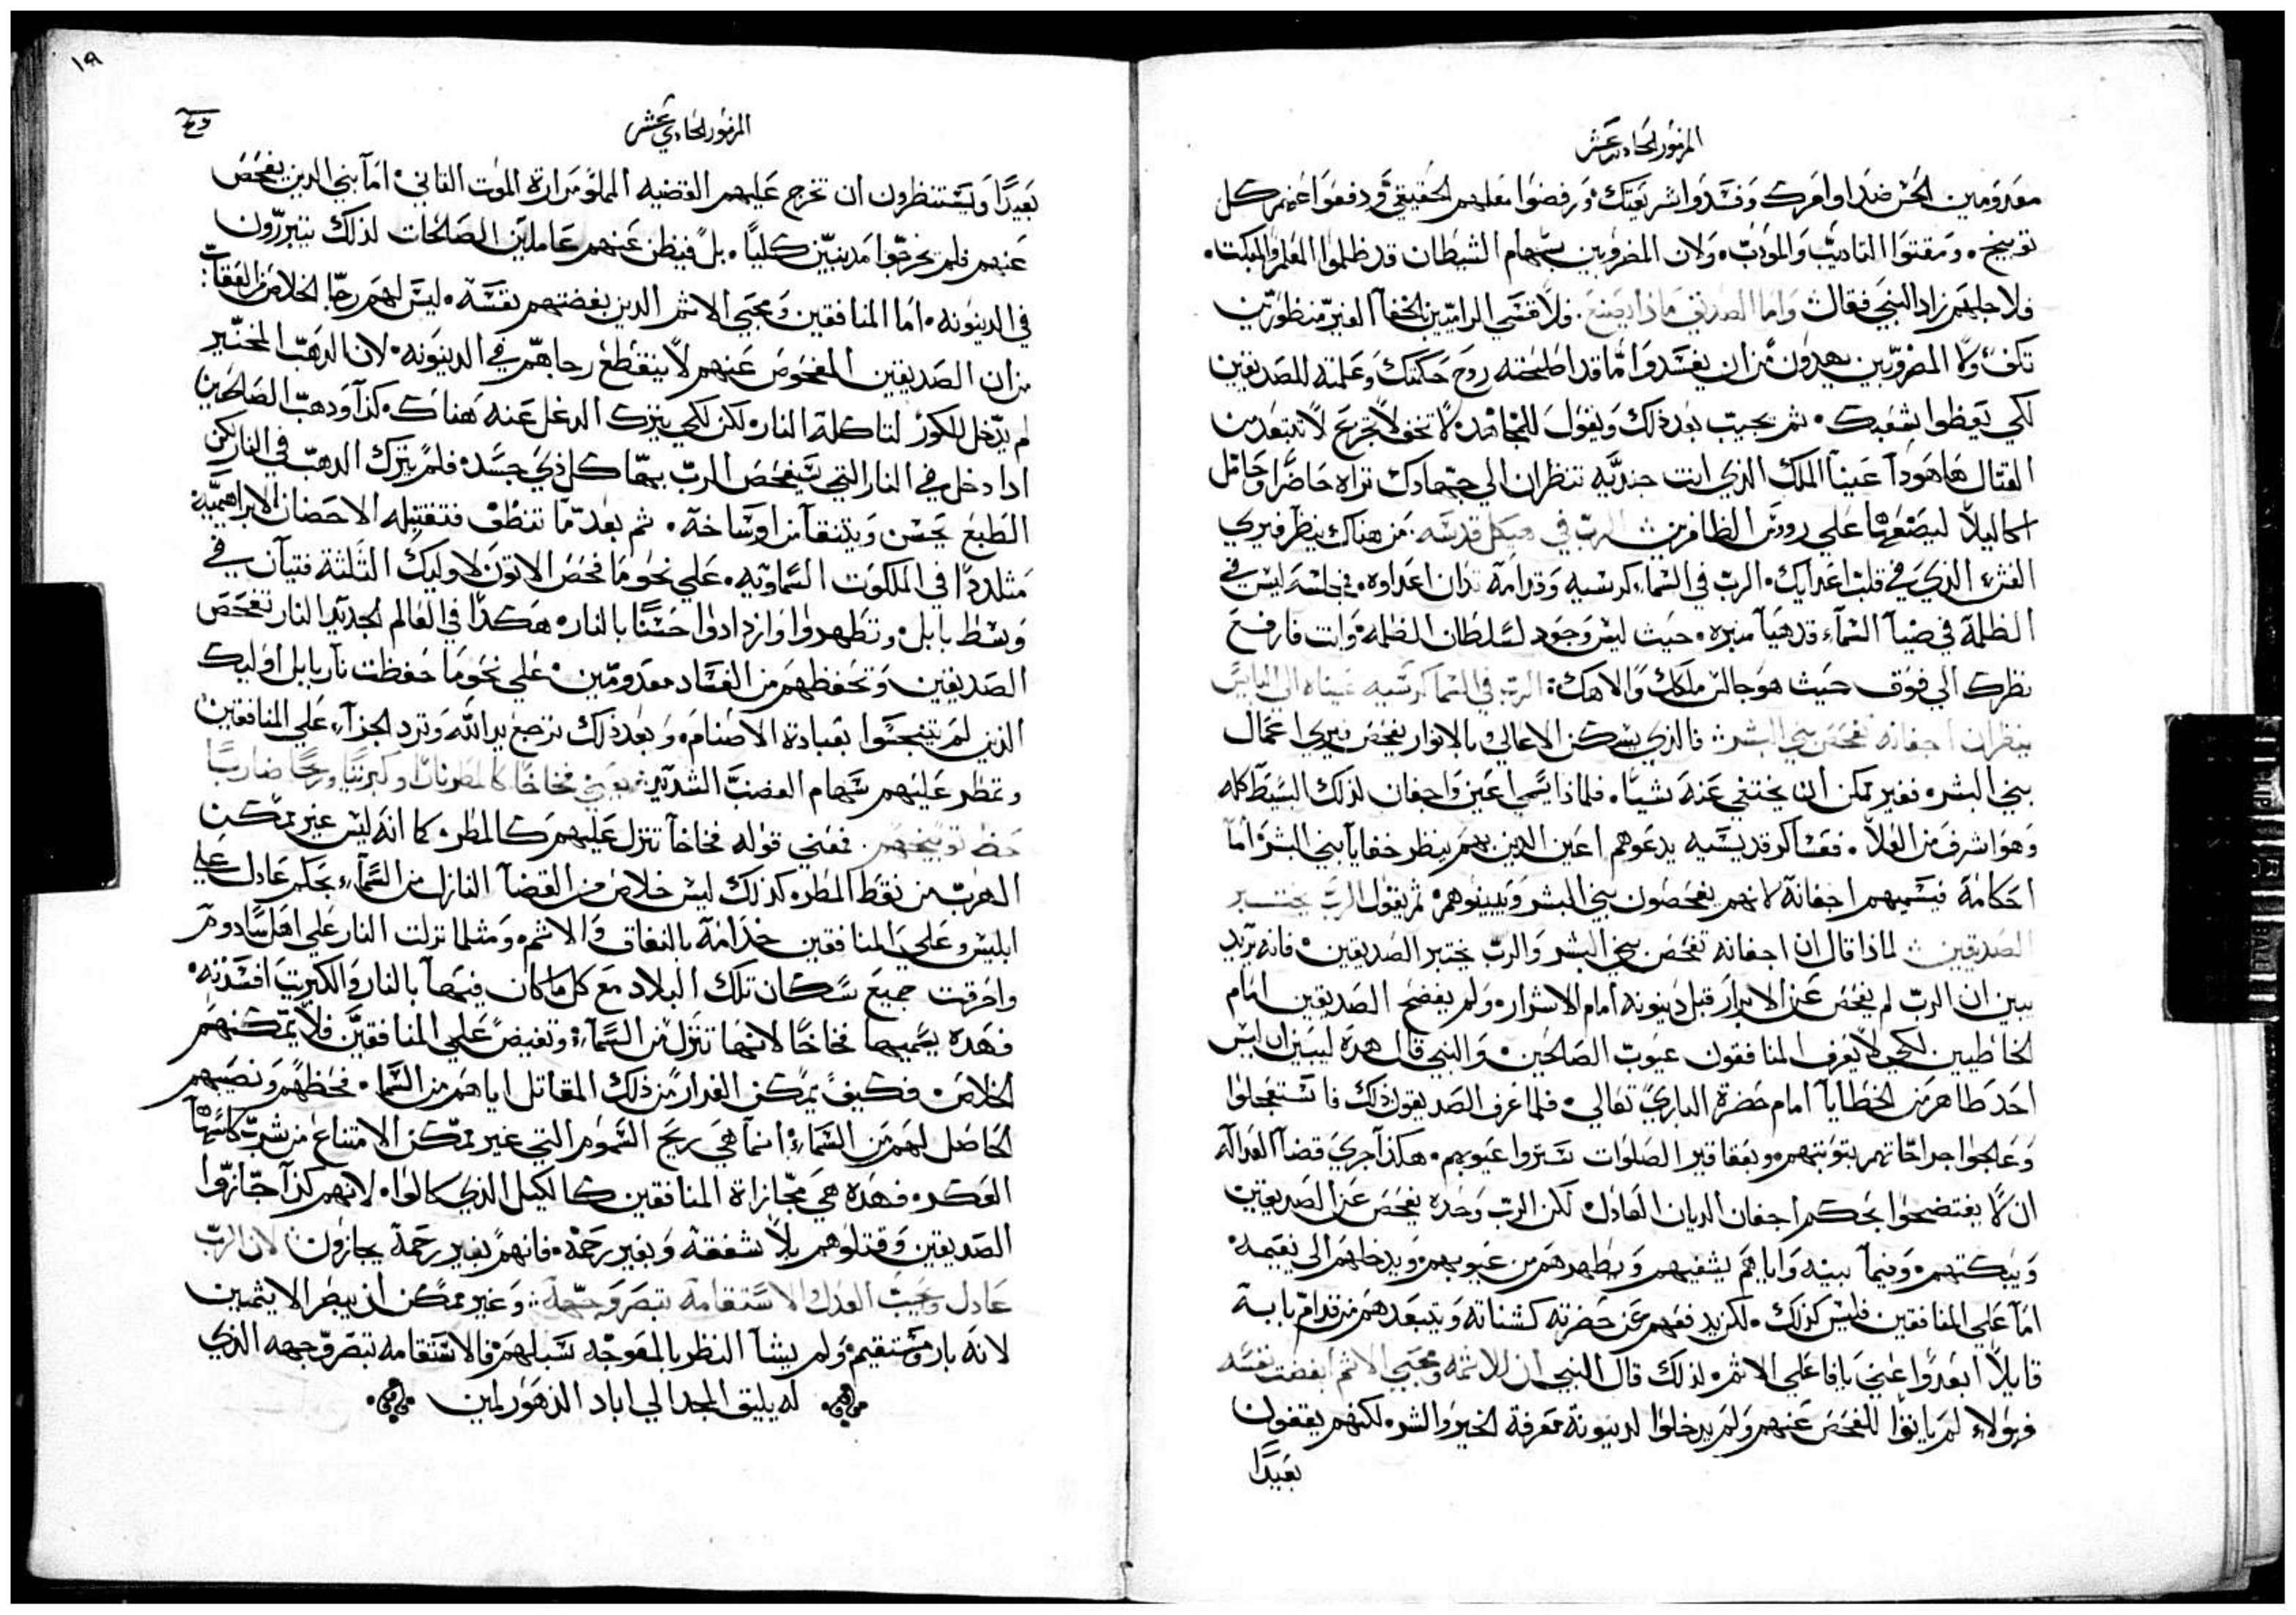 المزمور الحادي عشر
معدومين الحسن ضد اوامرك وفسدوا شريعتك. ورفضوا معلمهم الحقيقي ودفعوا عنهم كل
توبيخ. ومقتوا التاديب والمودب. ولان المضروبين بسهام الشيطان قد ظلموا المعلم والمبكت.
فلاجلهم زاد النبي فقال واما الصديق ماذا يصنع. فلا قسي الراميين بالخفا الغير منظورين
تكف ولا المضروبين يهدون من ان يفسدوا ما قد اصلحته روح حكمتك وعلمته للصديقين
لكي يعظوا شعبك. ثم يجيب بعد ذلك ويقول للمجاهد. لا تخف لا تجزع لا تبتعد من
القتال ها هوذا عينا الملك الذي انت جنديه تنظران الي جهادك تراه حاضرا وحامل
اكاليلا ليضعها علي رووس الظافرين الرب في هيكل قدسه. من هناك ينظر فيري
الفكر الذي في قلب اعدايك. الرب في السماء كرسيه وقدامه تدان اعداوه. مجلسه ليس في
الظلمة في ضيا السماء قد هيا منبره. حيث ليس وجود لسلطان الظلمه. وانت فارفع
نظرك الي فوق حيث هو جالس ملكك والاهك: الرب في السما كرسيه عيناه الي البايس
ينظران اجفانه تفحص بني البشر فالذي يسكن الاعالي بالانوار يفحص فيري اعمال
بني البشر. فغير ممكن ان يختفي عنه شيا. فلماذا يسمي اعين واجفان لذلك البسيط كله
وهو اشرف من العلا. فعساكر قديسيه يدعوهم اعين الذين بهم ينظر خفايا بني البشر. اما
احكامه فيسميهم اجفانه لانهم يفحصون بني البشر ويبينوهم. ثم يقول الرب يختبر
الصديقين لماذا قال ان اجفانه تفحص بني البشر والرب يختبر الصديقين. فانه يريد
يبين ان الرب لم يفحص عن الابرار قبل دينونه امام الاشرار. ولم يفضح الصديقين امام
الخاطيين لكي لا يعرف المنافقون عيوب الصالحين. والنبي قال هذه ليبين ان ليس
احد طاهر من الخطايا امام حضرة الباري تعالي. فلما عرف الصديقون ذلك فاستعجلوا
وعالجوا جراحاتهم بتوبتهم. وبعقاقير الصلوات ستروا عيوبهم. هكذا جري قضا العداله
ان لا يفتضحوا بحكم اجفان الديان العادل. لكن الرب وحده يفحص عن الصديقين
ويبكتهم. وفيما بينه واياهم يشفيهم ويطهرهم من عيوبهم. ويدخلهم الي نعيمه.
اما علي المنافقين فليس كذلك. لكن يدفعهم عن حضرته كشناته ويتبعدهم من قدام بابه
قايلا ابعدوا عني يا فاعلي الاثم. لذلك قال النبي ان للاثمه ومحبي الاثم ابغضت نفسه
فهولاء لم ياتوا للفحص عنهم ولم يدخلوا لدينونة معرفة الخير والشر. لكنهم يقفون
بعيدا
١٩
المزمور الحادي عشر
بعيدا ويستنظرون ان تخرج عليهم القضيه المملوه مرارة الموت الثاني. اما بني الدين يفحص
عنهم فلم يخرجوا مدنبين كليا. بل فيظن عنهم عاملين الصالحات لذلك يتبررون
في الدينونه. اما المنافقين ومحبي الاثم الدين بغضتهم نفسه. ليس لهم رجا الخلاص من العقاب:
من ان الصديقين المفحوص عنهم لا ينقطع رجاهم في الدينونه. لان الدهب المختبر
لم يدخل للكور لتاكله النار. لكن لكي يترك الدغل عنه هناك. كذا ودهب الصالحين
ادا دخل في النار التي سيفحص الرب بها كل ذي جسد. فلم يترك الدهب في النار لكن
الطبع يحسن ويتنقا من اوساخه. ثم بعد ما تنظف فتقتبله الاحضان الابراهيميه
متلددا في الملكوت السماويه. علي نحو ما فحص الاتون لاوليك الثلثة فتيان في
وسط بابل. وتطهروا وازدادوا حسنا بالنار. هكذا في العالم الجديد النار تفحص
الصديقين وتحفظهم من الفساد معدومين. علي نحو ما حفظت نار بابل اوليك
الذين لم يتنجسوا بعبادة الاصنام. وبعد ذلك ترجع يد الله وترد الجزآء علي المنافقين
وتمطر عليهم سهام الغضب الشديد: يعني فخاخا كالمطر نارا وكبريتا وريحا ضاربا
حظ توبيخهم. فعني قوله فخاخا تنزل عليهم كالمطر. كما انه ليس غير ممكن
الهرب من نقط المطر. كذلك ليس خلاص من القضآ النازل من السمآء بحكم عادل علي
ابليس وعلي المنافقين خدامه بالنفاق والاثم. ومثلما نزلت النار علي اهل سادوم
واحرقت جميع سكان تلك البلاد مع كل ما كان فيها بالنار والكبريت افسدته.
فهده يسميها فخاخا لانها تنزل من السمآء: وتفيض علي المنافقين فلا يمكنهم
الخلاص. فكيف يمكن الفرار من ذلك المقاتل اياهم من السما. فحظهم ونصيبهم
الحاصل لهم من السماء. انما هي ريح السموم التي غير ممكن الامتناع من شرب كاسها
العكر. فهده هي مجازاة المنافقين كالكيل الذي كالوا. لانهم كذا جازوا
الصديقين وقتلوهم بلا شفقة وبغير رحمة. فانهم بغير رحمة يجازون لان الرب
عادل ويحب العدل الاستقامة تبصر وجهه: وغير ممكن ان ينظر الايثمين
لانه بار ومستقيم. ولم يشا النظر بالمعوجه سبلهم. فالاستقامه تبصر وجهه الذي
له يليق المجد الي اباد الدهور امين